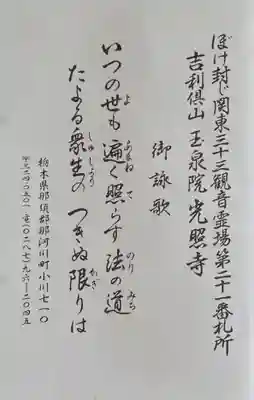 ぼけ封じ関東三十三観音霊場第二十一番札所
吉利倶山 玉泉院 光照寺
御詠歌
いつの世も 遍く照らす 法の道
たよる衆生の つきぬ限りは
栃木県那須郡那珂川町小川七一〇
〒三二四-〇五〇一 ☎〇二八七-九六-二〇四五